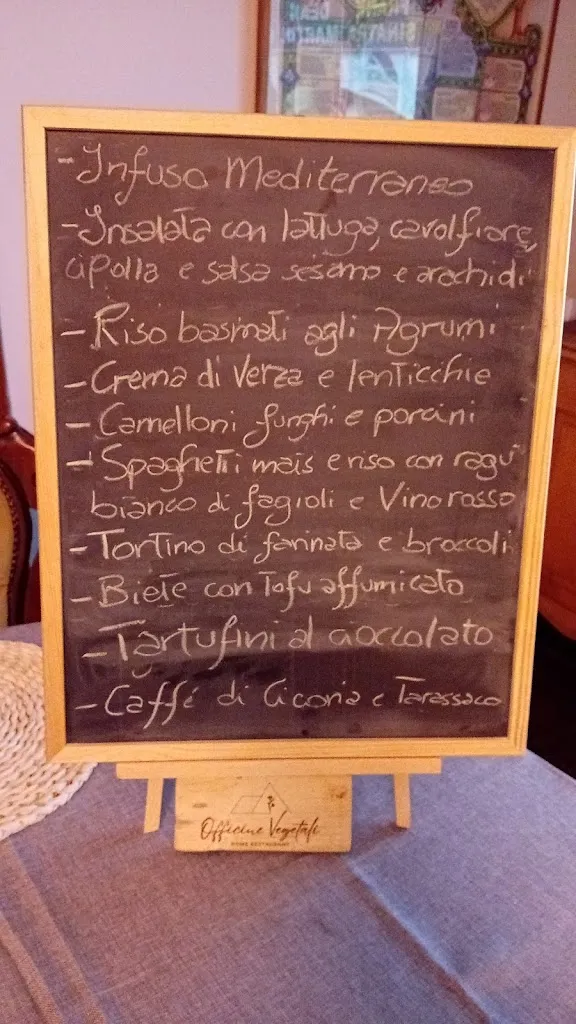 DEAN
SINATRA MARTIN
- Infuso Mediterraneo
- Insalata con lattuga, cavolfiore,
cipolla e salsa sesamo e arachidi
- Riso basmati agli Agrumi
- Crema di Verza e lenticchie
- Camelloni funghi e porcini
- Spaghetti mais e riso con ragù
bianco di fagioli e Vino rosso
- Tortino di farinata e broccoli
- Biete con Tofu affumicato
- Tartufini al cioccolato
- Caffé di Cicoria e Tarassaco
Officine Vegetali
HOME RESTAURANT